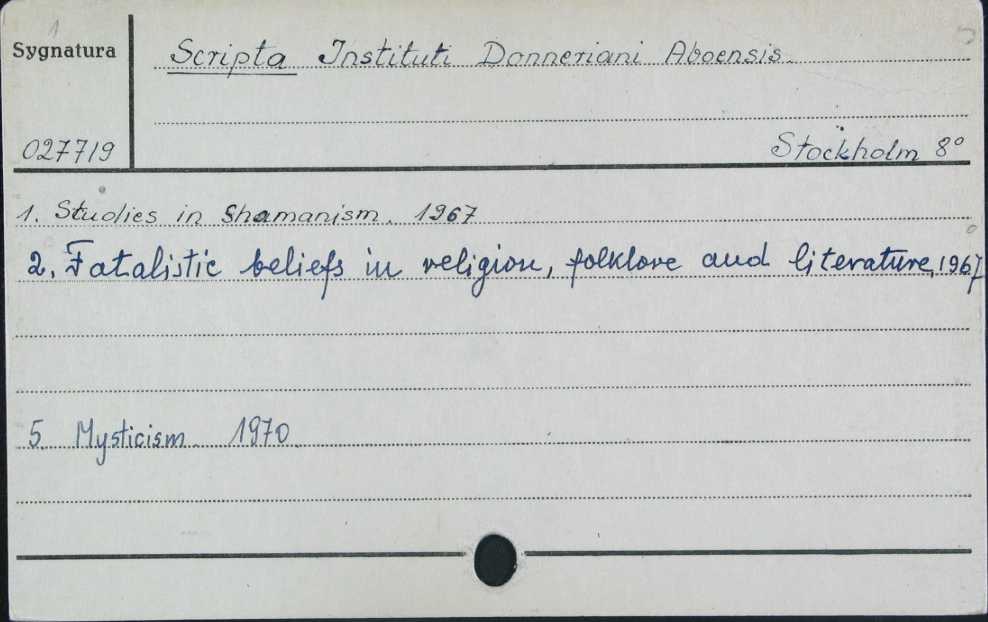 1
Sygnatura
Scripta Instituti Donneriani Aboensis.
027719
Stockholm 8°
1. Studies in Shamanism. 1967
2. Fatalistic beliefs in religion, folklore and literature, 1967
5 Mysticism 1970